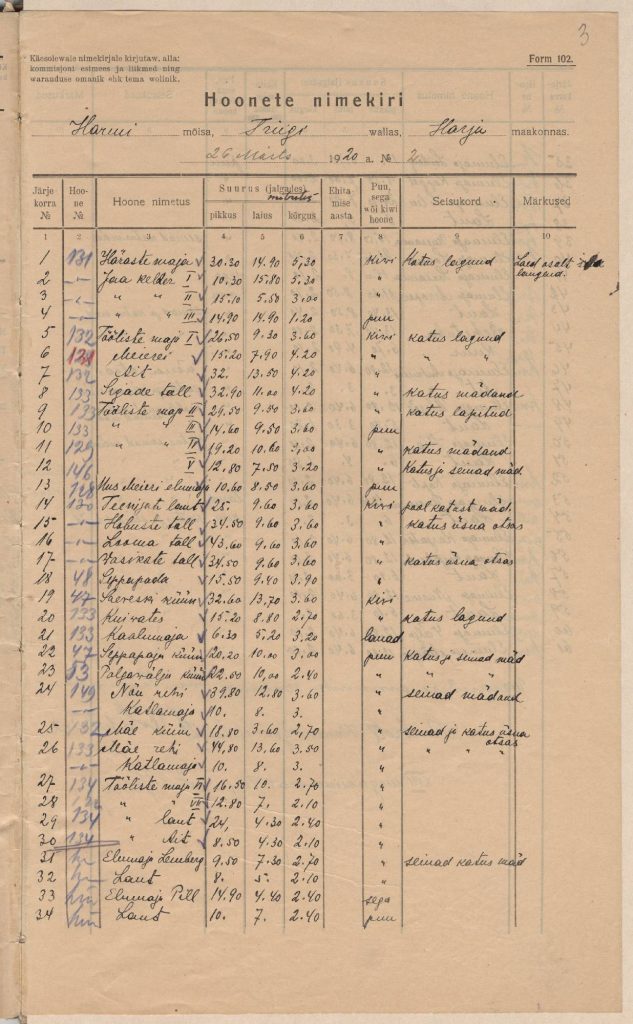 3
Käesolewale nimekirjale kirjutaw. alla:
kommisjoni esimees ja liikmed ning
waranduse omanik ehk tema wolinik.
Form 102.
Hoonete nimekiri
Harmi mõisa, Triigi wallas, Harju maakonnas.
26 Märts 1920 a. № 2
Järje korra № Hoone № Hoone nimetus Suurus (jalgades) meetrites pikkus laius kõrgus Ehitamise aasta Puu, sega wõi kiwi hoone Seisukord Märkused
1 2 3 4 5 6 7 8 9 10
1 131 Häraste maja 30.30 14.90 5.30 kivi Katus lagund Laed osalt
2 -"- Jaa kelder I 10.30 15.80 5.30 "
3 -"- " " II 15.10 5.50 3.00 "
4 -"- " " III 14.90 14.90 1.20 puu
5 132 Tööliste maja I 26.50 9.30 3.60 kivi katus lagund
6 Meierei 15.20 7.90 4.20 " " "
7 132 Ait 32. 13.50 4.20 "
8 133 Sigade tall 32.90 11.00 4.20 " katus mädand
9 133 Tööliste maja II 29.50 9.50 3.60 " katus lapitud
10 133 " " III 14.60 9.50 3.60 puu
11 129 " " II 19.20 10.60 3.00 " katus mädand
12 146 V 12.80 7.50 3.20 " Katus ja seinad mäd.
13 128 Uus Meieri elumaja 10.60 8.50 3.60 puu
14 130 Teenijate laut 25. 9.60 3.60 kivi pool katust mäd.
15 -"- Hobuste tall 34.50 9.60 3.60 " katus üsna otsas
16 -"- Looma tall 43.60 9.60 3.60 "
17 -"- Vasikate tall 34.50 9.60 3.60 " katus üsna otsas
18 48 Seppapada 15.50 9.40 3.90 "
19 47 Saereski küün 32.60 13.70 3.60 kivi
20 133 Kuivates 15.20 8.80 2.70 " katus lagund
21 133 Kaalumaja 6.30 5.20 3.20 lauad
22 47 Seppapaja küün 20.20 10.00 3.00 puu katus ja seinad mäd
23 53 Palgavälja küün 22.60 10.00 2.40 " " "
24 149 Nõu rehi 39.80 12.80 3.60 " seinad mädand
-"- Katlamaja 10. 8. 3. "
25 132 Mäe küün 18.80 3.60 2.70 " seinad ja katus üsna otsas
26 133 Mäe rehi 44.80 13.60 3.50 " " " "
-"- Katlamaja 10. 8. 3. "
27 134 Tööliste maja VI 16.50 10. 2.70 "
28 " " VII 12.80 7. 2.10 "
29 134 " laut 24. 4.30 2.40 "
30 134 " Ait 8.50 4.30 2.10 "
31 Elumaja Lemberg 9.50 7.30 2.70 " seinad katus mäd
32 Laut 8. 5. 2.10 "
33 Elumaja Pill 14.90 4.40 2.40 sega
34 Laut 10. 7. 2.40 puu